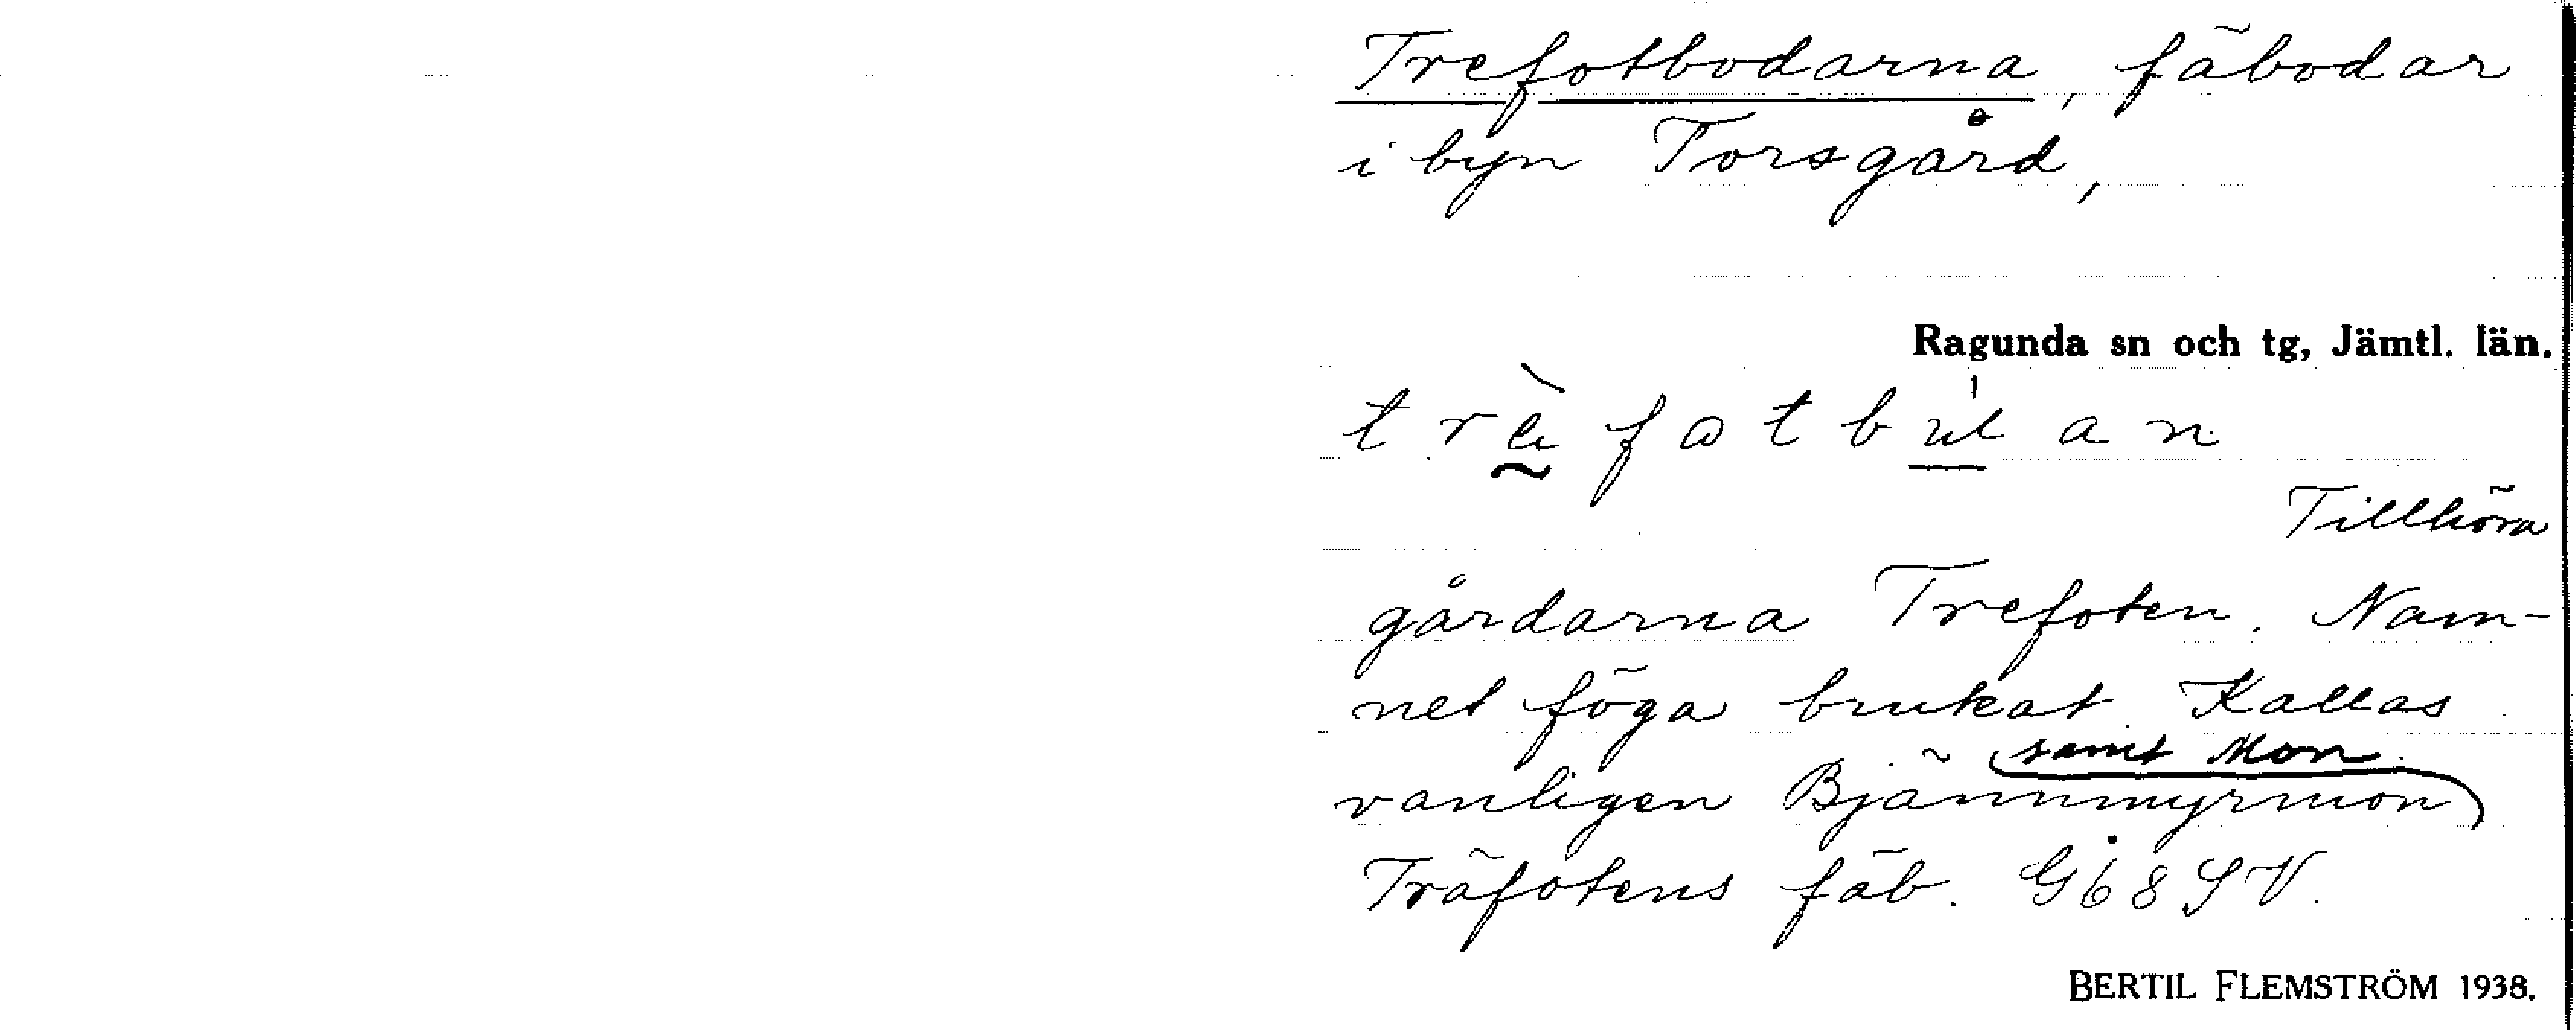 Trefotbodarna, fäbodar
i byn Torsgård,
Ragunda sn och tg, Jämtl. län.
Tillhöra
gårdarna Trefoten. Nam-
net föga brukat. Kallas
samt Mon.
vanligen Bjännmyrmon
Träfotens fäb. G68SV.
BERTIL FLEMSTRÖM 1938.